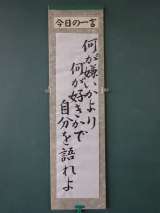 今日の一言
何が嫌いかより
何が好きかで
自分を語れよ